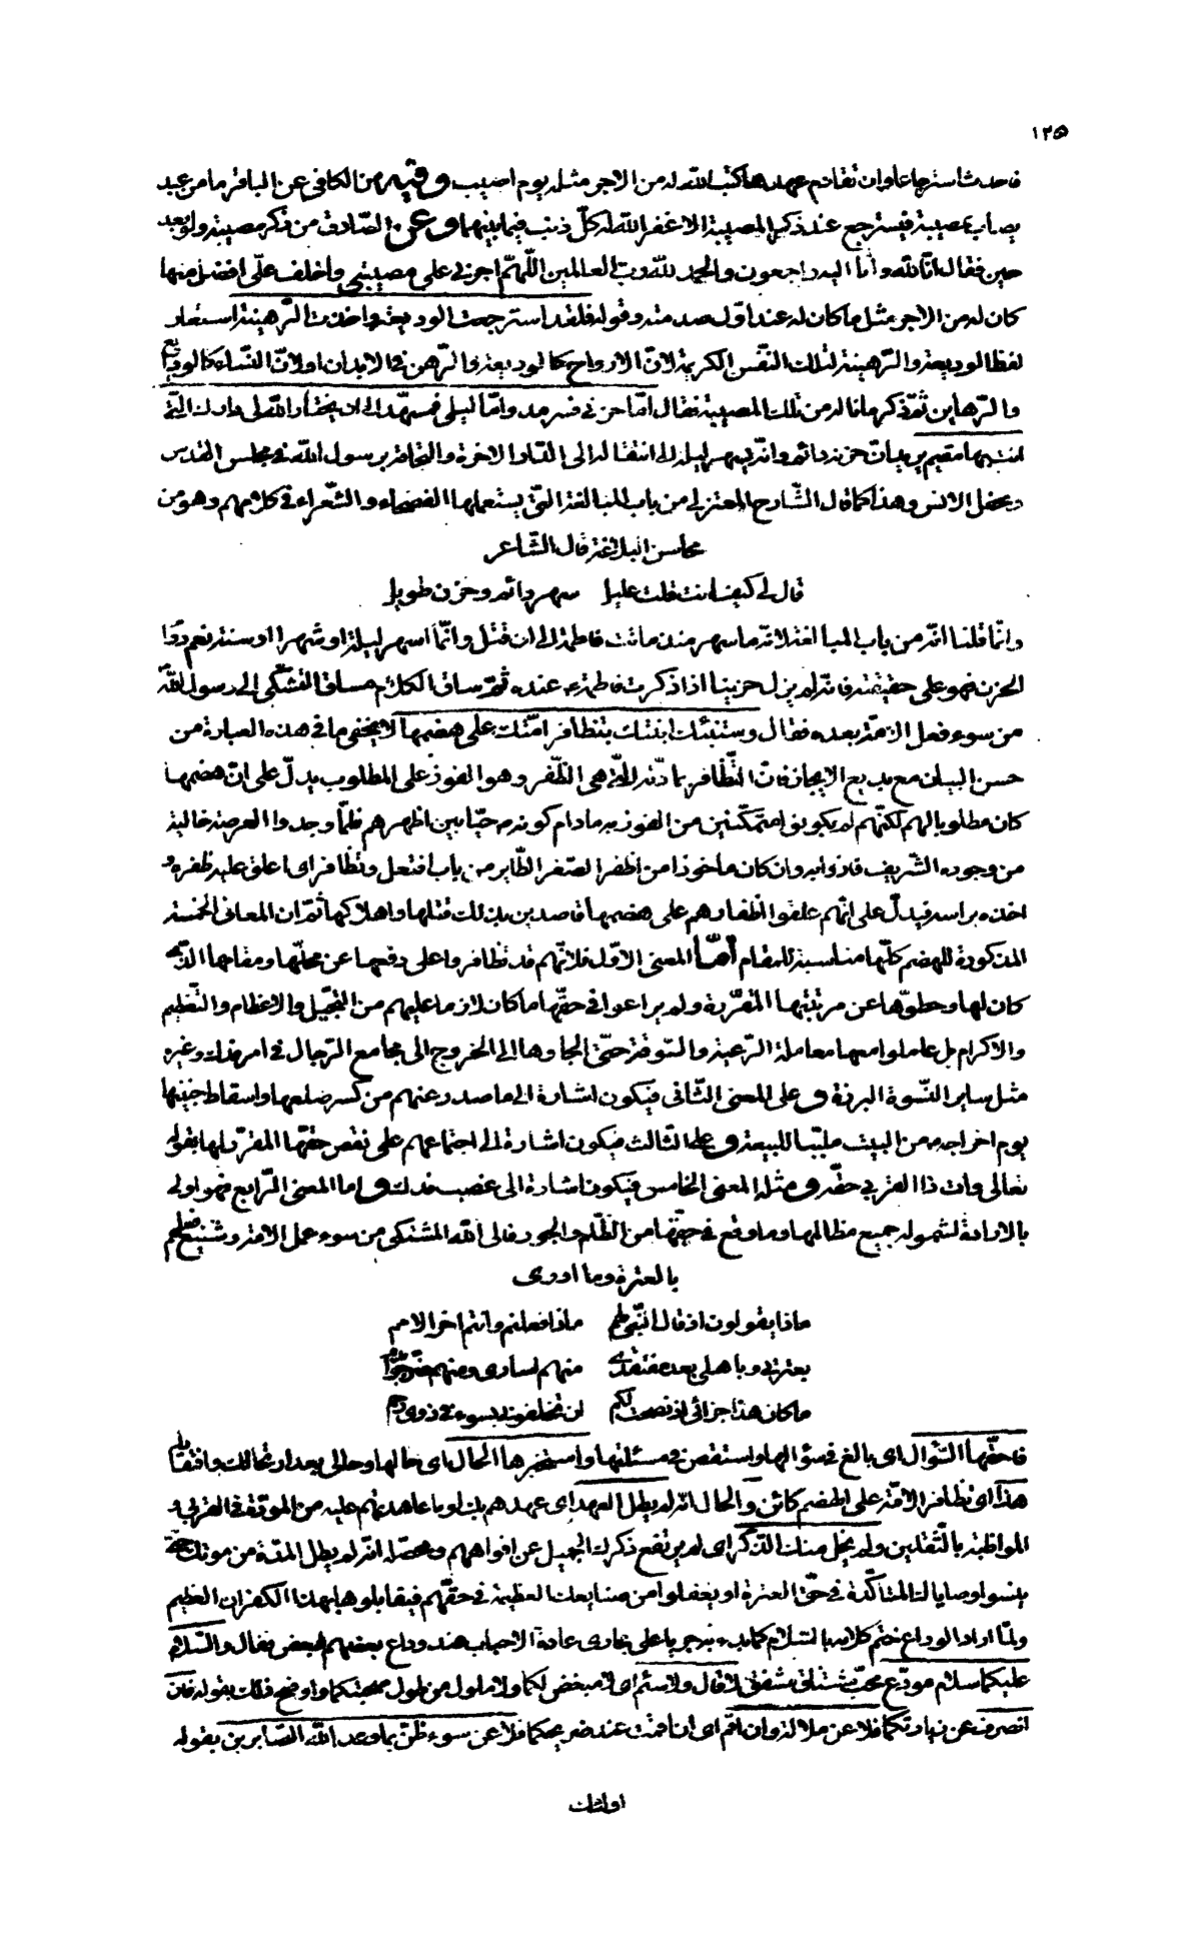 ١٢٥
فاحدث استرجاعا وان تقادم عهدها كتب الله له من الاجر مثله يوم اصيب وفيه من الكافي عن الباقر ما من عبد
يصاب بمصيبة فيسترجع عند ذكره المصيبة الا غفر الله له كلّ ذنب فيما بينهما وعن الصّادق من ذكر مصيبة ولو بعد
حين فقال انّا لله وانا اليه راجعون والحمد لله ربّ العالمين اللّهمّ اجرني على مصيبتي واخلف علّى افضل منها
كان له من الاجر مثل ما كان له عند اوّل صدمته وقوله فلقد استرجعت الوديعة واخذت الرّهينة استعار
لفظ الوديعة والرّهينة لتلك النّفس الكريمة لانّ الارواح كالوديعة والرّهن في الابدان او لانّ النّساء كالودايع
والرّهاين ثمّ ذكر ما ناله من تلك المصيبة فقال امّا حزني فسرمد وامّا ليلى فمسهّد الى ان يختار الله لى دارك الّتي
انت بها مقيم يريد انّ حزنه دائم وانّه يسهر ليله الى انتقاله الى الدّار الاخرة والتحاقه برسول الله في مجلس القدس
ومحفل الانس وهذا كما قال الشّارح المعتزلي من باب المبالغة الّتي يستعملها الفصحاء والشّعراء في كلامهم وهو من
محاسن البلاغة قال الشّاعر
قال لي كيف انت قلت عليل سهر دائم وحزن طويل
وانّما قلنا انّه من باب المبالغة لانّه ما سهر منذ ماتت فاطمة الى ان قتل وانّما اسهر ليلة او شهرا او سنة نعم دوام
الحزن فهو على حقيقته فانّه لم يزل حزينا اذا ذكرت فاطمة عنده ثمّ ساق الكلام مساق التّشكّى الى رسول الله
من سوء فعل الامّة بعده فقال وستنبّئك ابنتك بتظافر امّتك على هضمها لا يخفى ما في هذه العبارة من
حسن البيان مع بديع الايجاز فانّ التّظافر بمادّته الّتي هي الظّفر وهو الفوز على المطلوب يدلّ على انّ هضمها
كان مطلوبا لهم لكنّهم لم يكونوا متمكّنين من الفوز به ما دام كونه حيّا بين اظهرهم فلمّا وجدوا العرصة خالية
من وجوده الشّريف فازوا به وان كان ماخوذا من اظفر الصّقر الطّاير من باب افتعل وتظافر اى اعلق عليه ظفره و
اخذه براسه فيدلّ على انّهم علقوا اظفارهم على هضمها قاصدين بذلك قتلها واهلاكها ثمّ ان المعاني الخمسة
المذكورة للهضم كلّها مناسبة للمقام أمّا المعنى الاوّل فلانّهم قد تظافروا على دفعها عن محلّها ومقامها الّذي
كان لها وحطّوها عن مرتبتها المقرّرة ولم يراعوا في حقّها ما كان لازما عليهم من التّبجيل والاعظام والتّعظيم
والاكرام بل عاملوا معها معاملة الرّعية والسّوقة حتّى الجاوها الى الخروج الى مجامع الرّجال في امر فدك وغيره
مثل ساير النّسوة البرزة وعلى المعنى الثّاني فيكون اشارة الى ما صدر عنهم من كسر ضلعها واسقاط جنينها
يوم اخراجه من البيت ملبّبا للبيعة وعلى الثّالث فيكون اشارة الى اجتماعهم على نقص حقّها المقرّر لها بقوله
تعالى وات ذا القربى حقّه ومثله المعنى الخامس فيكون اشارة الى غصب فدك واما المعنى الرّابع فهو اولى
بالارادة لشموله جميع مظالمها وما وقع في حقّها من الظّلم والجور فالى الله المشتكى من سوء عمل الامّة وشنيع فعلهم
بالعترة وما ادرى
ماذا يقولون اذ قال النّبي لهم ماذا فعلتم وانتم اخر الامم
بعترتي وباهلى بعد مفتقدى منهم اسارى ومنهم ضرّجوا بدم
ما كان هذا جزائى اذ نصحت لكم ان تخلفوني بسوء في ذوى رحمي
فاحفّها السّؤال اى بالغ في سؤالها واستقص في مسئلتها واستخبرها الحال اى حالها وحالى بعد ارتحالك وانتقالك
هذا اى تظافر الامّة على الهضم كائن والحال انّه لم يطل العهد اى عهدهم بك او بما عاهدتهم عليه من المودّة في القربى و
المواظبة بالثّقلين ولم يخل منك الذّكر اى لم يرتفع ذكرك الجميل عن افواههم ومحصّله انّه لم يطل المدّة من موتك حتى
ينسوا وصاياك المتاكّدة في حقّ العترة او يغفلوا من صنايعك العظيمة في حقّهم فيقابلوها بهذا الكفران العظيم
ولمّا اراد الوداع ختم كلامه بالسّلام كما بدء به جريا على مجارى عادة الاحباب عند وداع بعضهم لبعض فقال والسّلام
عليكما سلام مودّع محبّ مشتاق مشفق لا قال ولا سئم اى لا مبغض لكما ولا ملول من طول صحبتكما واوضح ذلك بقوله فان
انصرف عن زيارتكما فلا عن ملالة وان اقم اى ان اقمت عند ضريحكما فلا عن سوء ظنّ بما وعد الله الصّابرين بقوله
اولئك